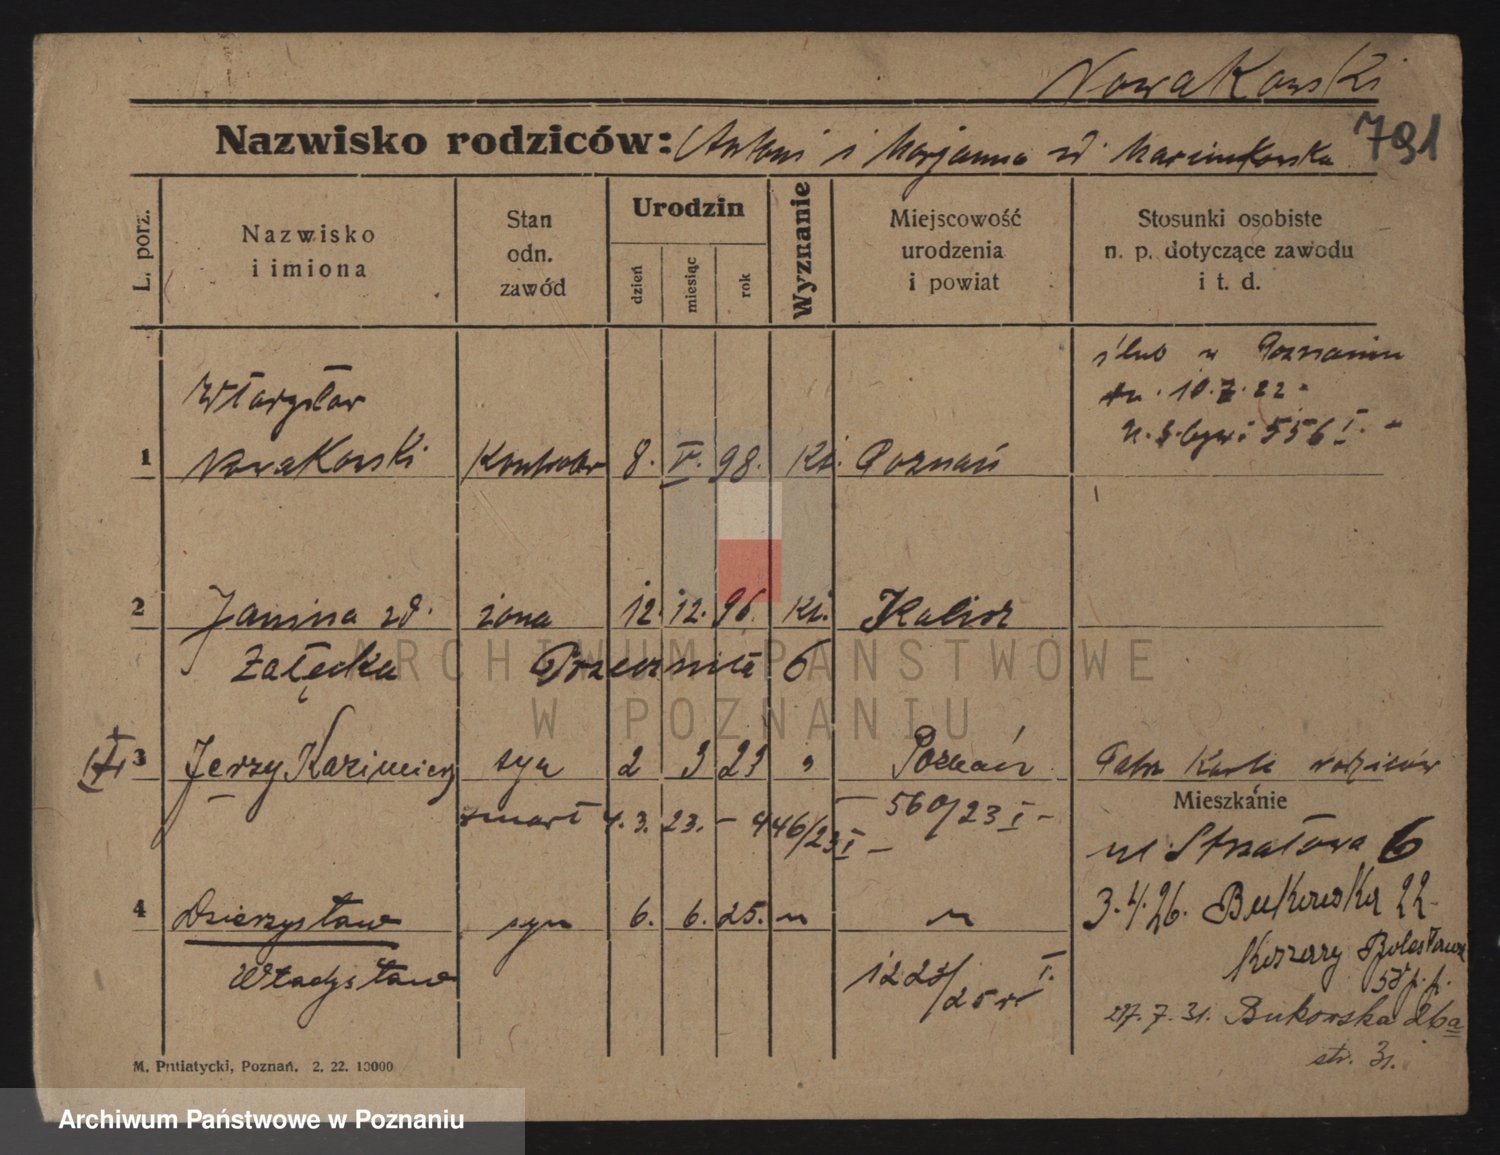 Nowakowski
Nazwisko rodziców: Antoni i Marjanna zd Marcinkowska 791
L. porz.
Nazwisko i imiona
Stan odn. zawód
Urodzin
dzień
miesiąc
rok
Wyznanie
Miejscowość urodzenia i powiat
Stosunki osobiste n. p. dotyczące zawodu i t. d.
ślub w Poznaniu
dn. 10.7.22
556 I.
Władysław
1 Nowakowski Kontroler 8. V. 98. Kt. Poznań
2 Janina zd. żona 12. 12. 96. Kt. Kalisz
Załęcka 6
3 Jerzy Kazimierz syn 2 3 23 " Poznań Patrz Karta rodziców
Mieszkanie
zmarł 4. 3. 23. - 446/23 I - - 560/23 I -
ul Strzałowa 6
4 Dzierzysław syn 6. 6. 25. " " 3.4.26. Bukowska 22
Władysław 1223/25 I.
Koszary
58 p. p.
27. 7. 31. Bukowska 26a
str. 31.
M. Putiatycki, Poznań. 2. 22. 10000
ARCHIWUM PAŃSTWOWE
W POZNANIU
Archiwum Państwowe w Poznaniu